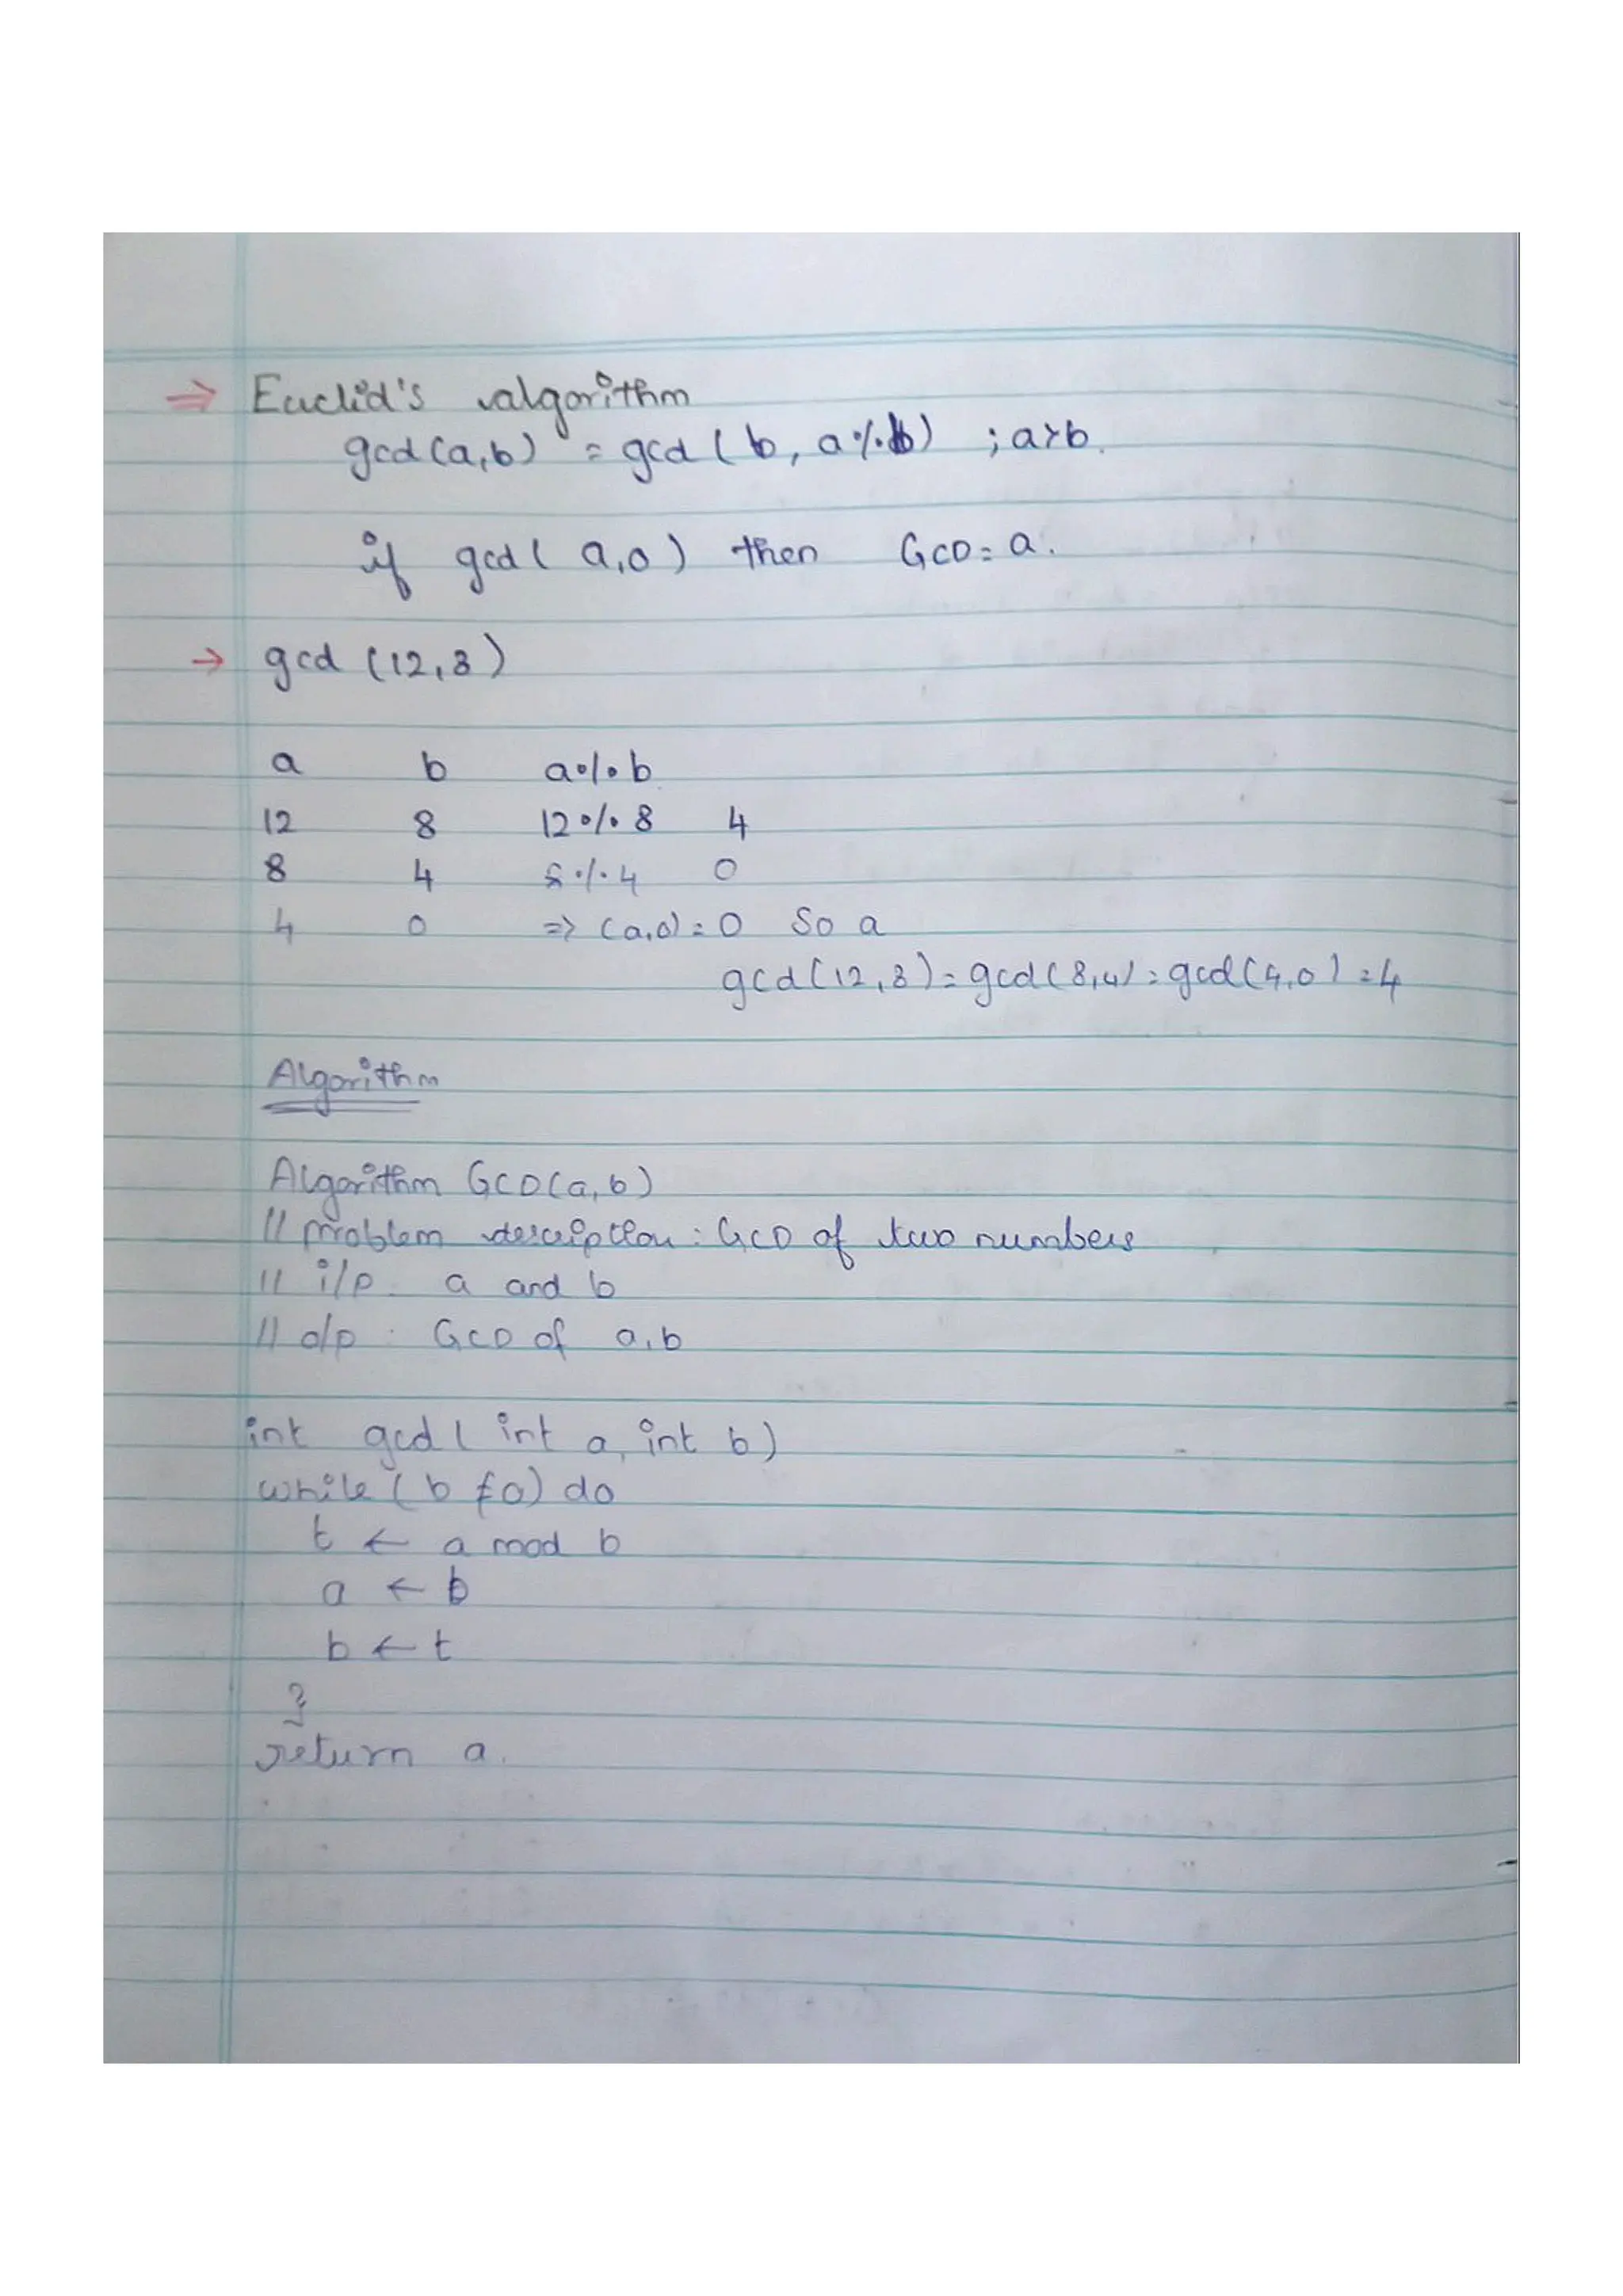 ⇒ Euclid's algorithm
gcd(a,b) = gcd(b, a%b) ; a>b.
if gcd(a,0) then GCD = a.
→ gcd (12,8)
a b a%b
12 8 12%8 4
8 4 8%4 0
4 0 => (a,0) = 0 So a
gcd(12,8) = gcd(8,4) = gcd(4,0) = 4
Algorithm
Algorithm GCD(a,b)
// problem description : GCD of two numbers
// i/p. a and b
// o/p : GCD of a,b
int gcd( int a, int b)
while (b ≠ 0) do
t ← a mod b
a ← b
b ← t
}
return a.